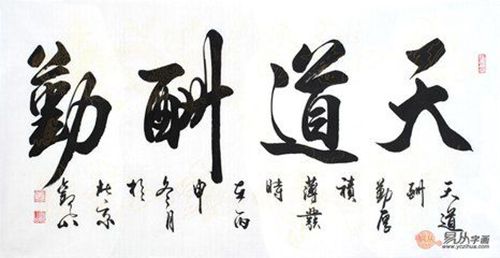 天道酬勤
天道
酬
勤厚
積
薄發
時
在丙
申
冬月
於
北京
易从字画
www.yczihua.com